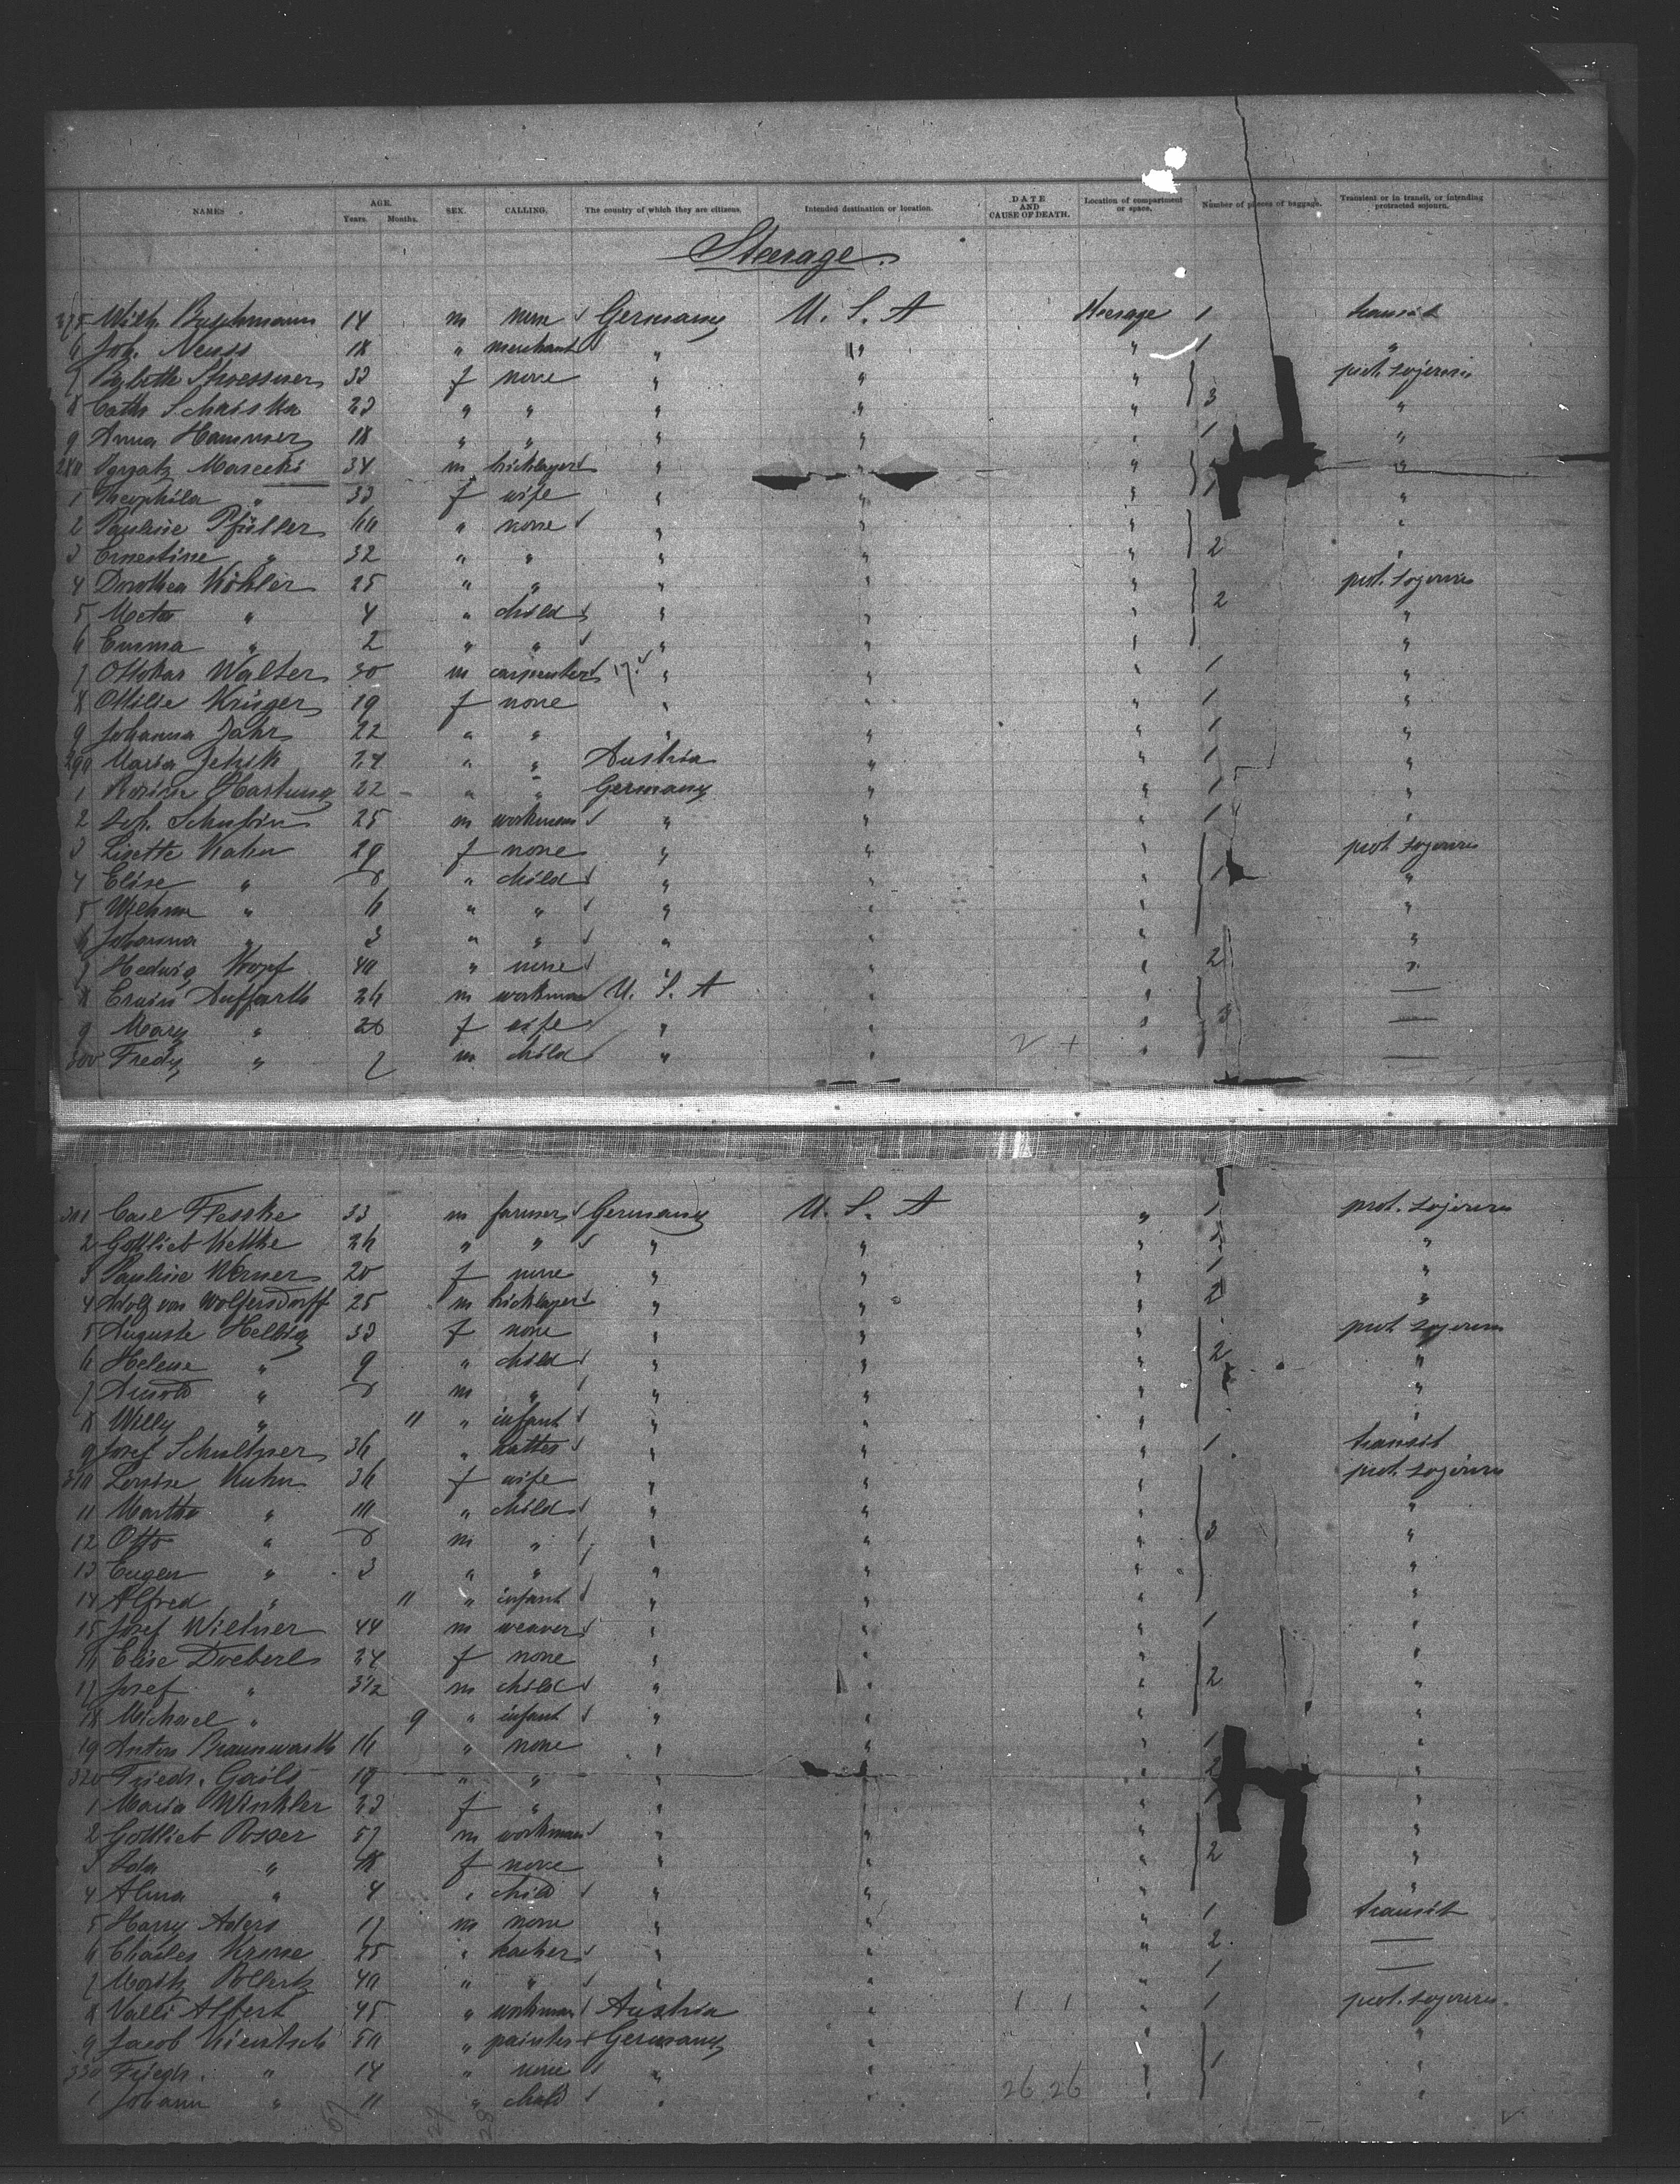 NAMES AGE. Years. Months. SEX. CALLING. The country of which they are citizens. Intended destination or location. DATE AND CAUSE OF DEATH. Location of compartment or space. Number of pieces of baggage. Transient or in transit, or intending protracted sojourn.
Steerage.
275 Wilh. Buschmann 14 m none Germany U. S. A Steerage 1 transit
6 Joh. Neuss 18 " merchant " " " 1 "
7 Babette 33 f none " " " prot. sojourn
8 Cath. 23 " " " " " 3 "
9 Anna Hammer 18 " " " " " 1 "
280 34 m bricklayer " " " "
1 Theophila " 33 f wife " " " "
2 Pauline Pfüller 60 " none " " " "
3 Ernestine " 32 " " " " " 2 "
4 Dorothea Köhler 25 " " " " " prot. sojourn
5 Meta " 4 " child " " " 2 "
6 Emma " 2 " " " " " "
7 Ottokar Walter 30 m carpenter " " " 1 "
8 Ottilie Krüger 19 f none " " " 1 "
9 Johanna Jahr 22 " " " " " 1 "
290 Maria 24 " " Austria " " 1 "
1 Hartung 22 " " Germany " " 1 "
2 Joh. 25 m workman " " " 1 "
3 Lisette Kahn 29 f none " " " prot. sojourn
4 Elise " 8 " child " " " 1 "
5 " 6 " " " " " "
6 Johanna " 3 " " " " " "
7 Hedwig Kopf 40 " none " " " 2 "
8 Erwin Auffarth 26 m workman U. S. A " " —
9 Mary " 26 f wife " " " 3 —
300 Fredy " 2 m child " " " —
301 Carl Fleske 33 m farmer Germany U. S. A " 1 prot. sojourn
2 Gottlieb 26 " " " " " "
3 Pauline Werner 20 f none " " " 1 "
4 Adolf von Wolfersdorff 25 m bricklayer " " " 2 "
5 Auguste Helbig 33 f none " " " prot. sojourn
6 Helene " 9 " child " " " 2 "
7 Arnold " 8 m " " " " "
8 Willy " 11 " infant " " " "
9 Josef 36 " " " " 1 transit
310 Louise Kuhn 36 f wife " " " prot. sojourn
11 Martha " 10 " child " " " "
12 Otto " 8 m " " " " 3 "
13 Eugen " 3 " " " " " "
14 Alfred " 11 " infant " " " "
15 Josef 44 m weaver " " " 1 "
16 Elise Doeberl 24 f none " " " "
17 Josef " 3½ m child " " " 2 "
18 Michael " 9 " infant " " " "
19 Anton Braunwarth 16 " none " " " 1 "
320 Friedr. 19 " " " " " 2 "
1 Maria Winkler 23 f " " " " "
2 Gottlieb Posser 57 m workman " " " "
3 Ida " 18 f none " " " 2 "
4 Alma " 4 " child " " " "
5 Harry Aders 17 m none " " " 1 transit
6 Charles Krone 25 " " " " 2 —
7 Moritz 40 " " " " " 1 —
8 Valli Albert 45 " workman Austria " " 1 prot. sojourn
9 Jacob 50 " painter Germany "
330 Friedr. " 14 " none " " 1 "
1 Johann " 11 " child " 26 26 "